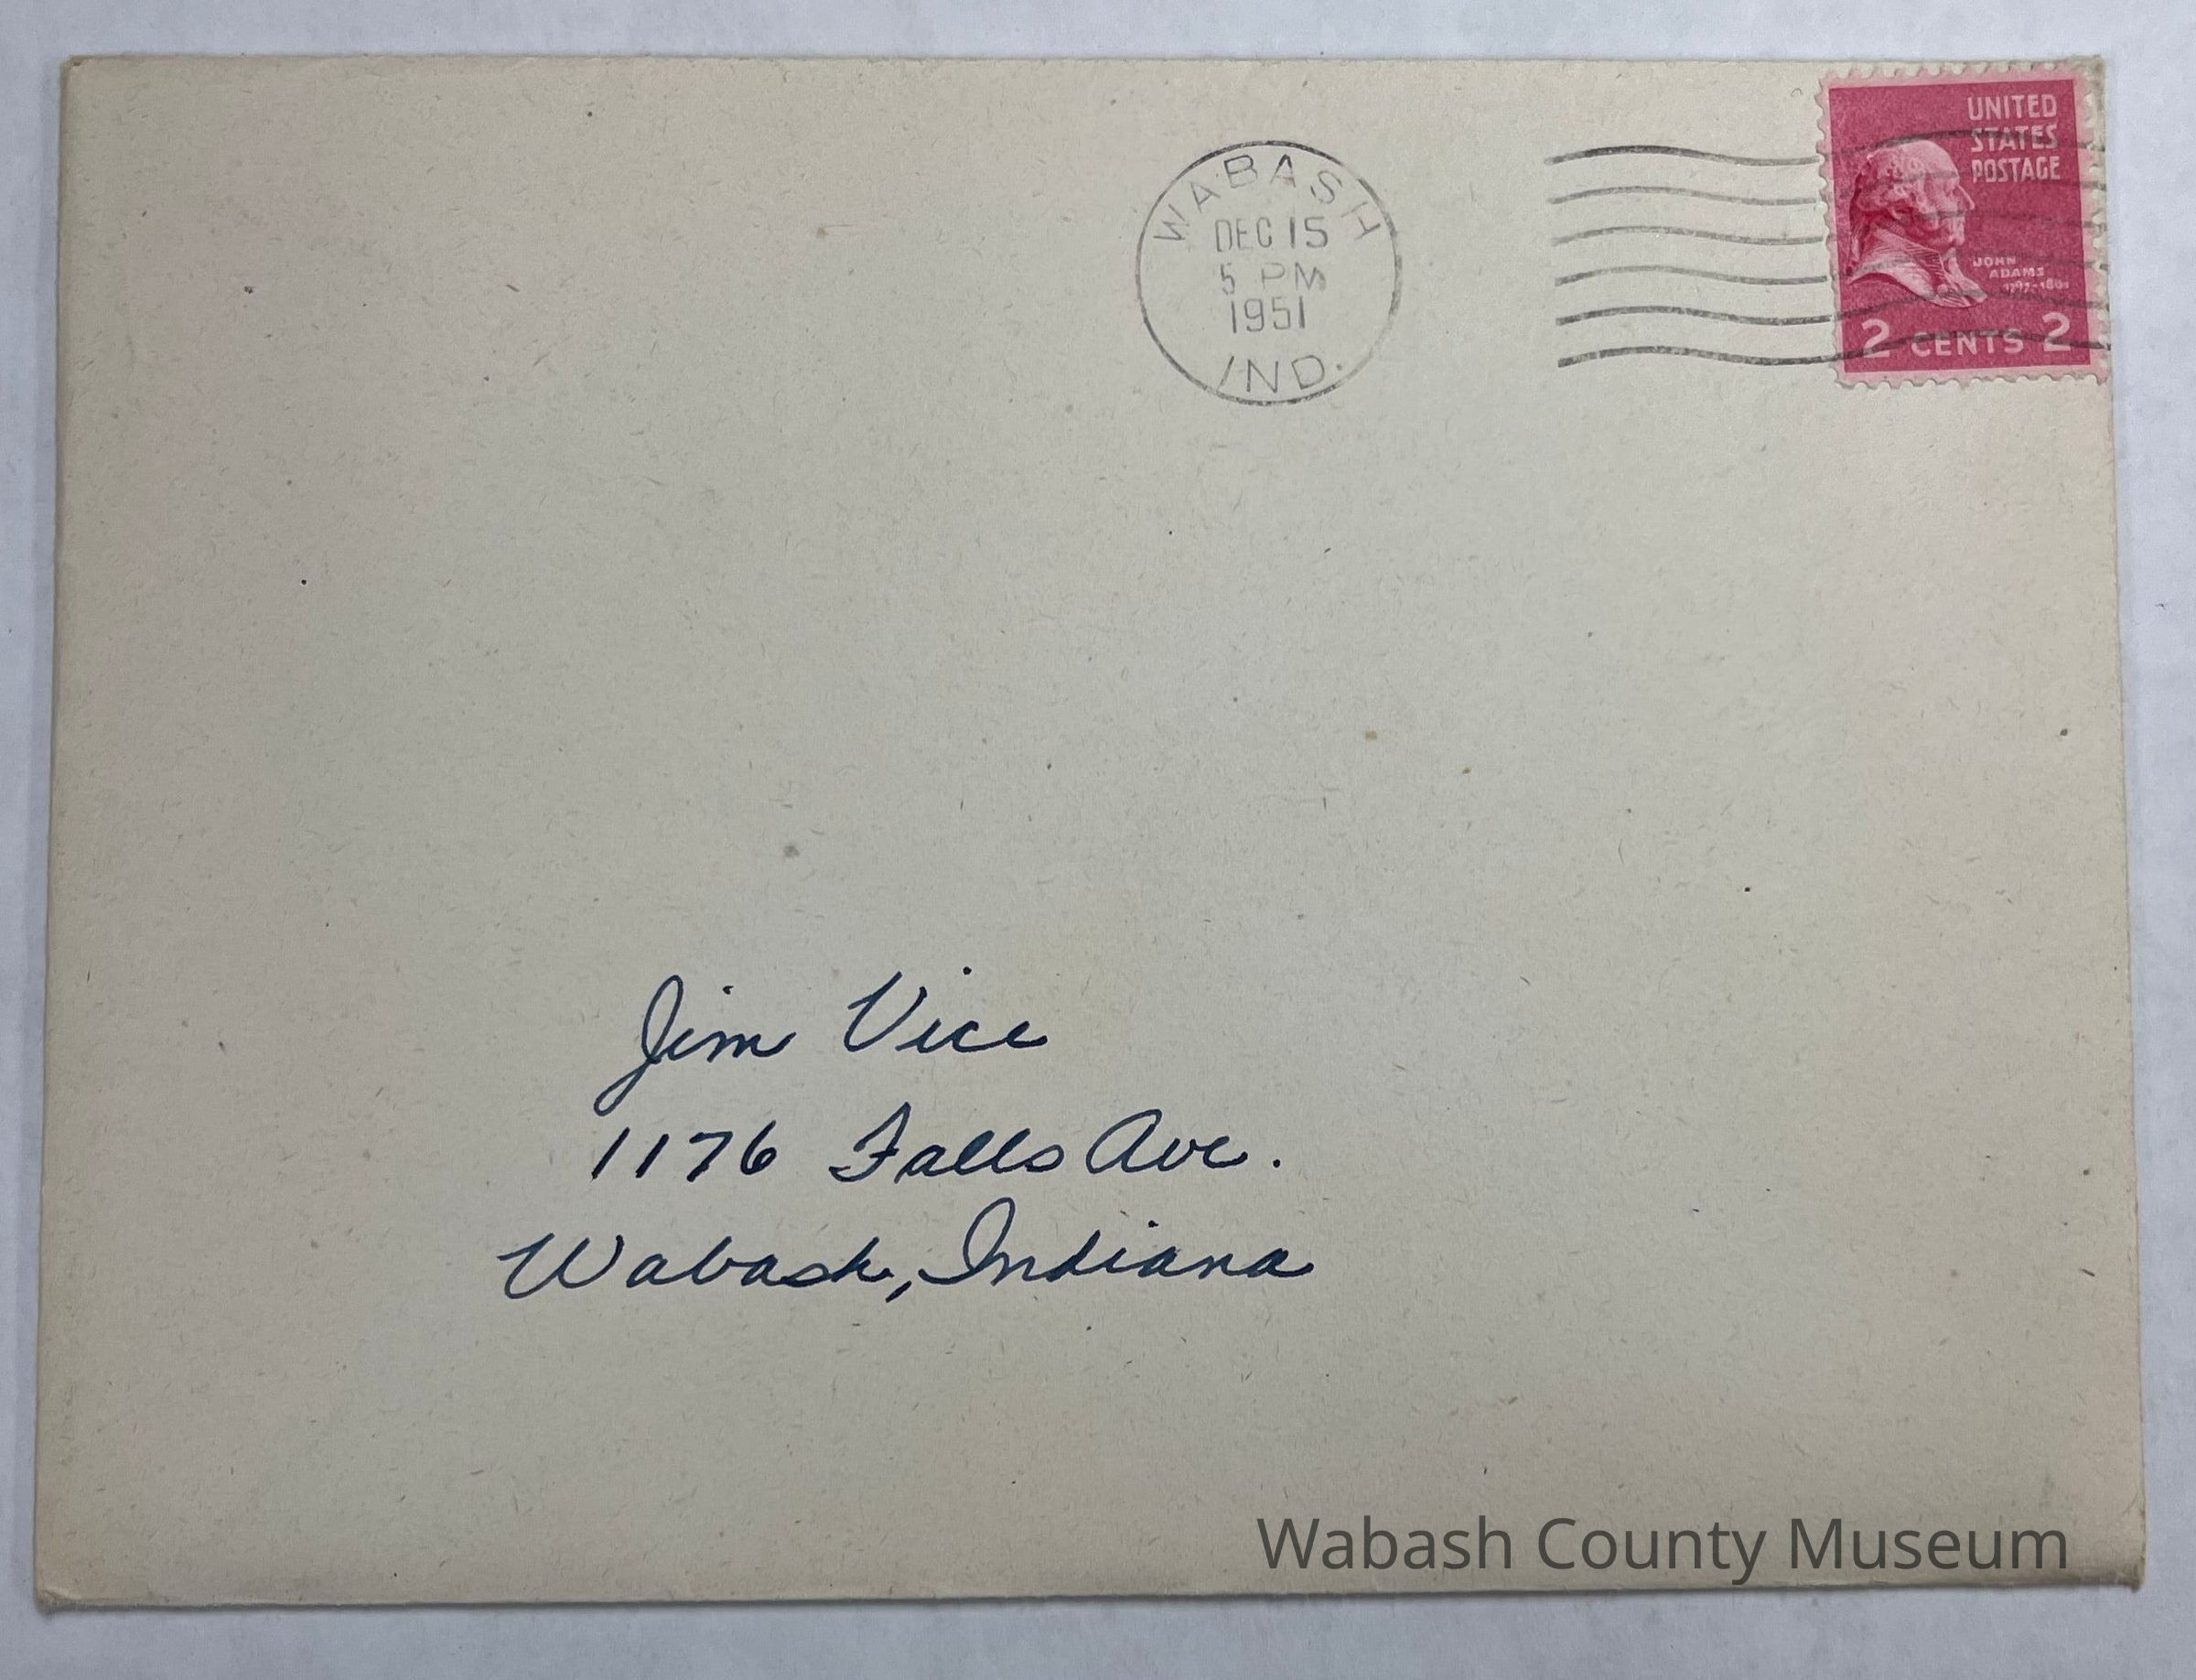 UNITED
STATES
POSTAGE
JOHN
ADAMS
1797-1801
2 CENTS 2
WABASH
DEC 15
5 PM
1951
IND.
Jim Vice
1176 Falls Ave.
Wabash, Indiana
Wabash County Museum